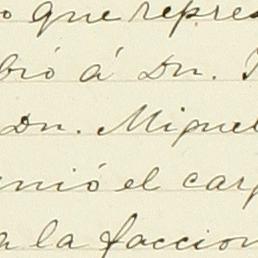 o que repres
bió á Dn.
Dn. Miguel
nió el carg
a la faccion